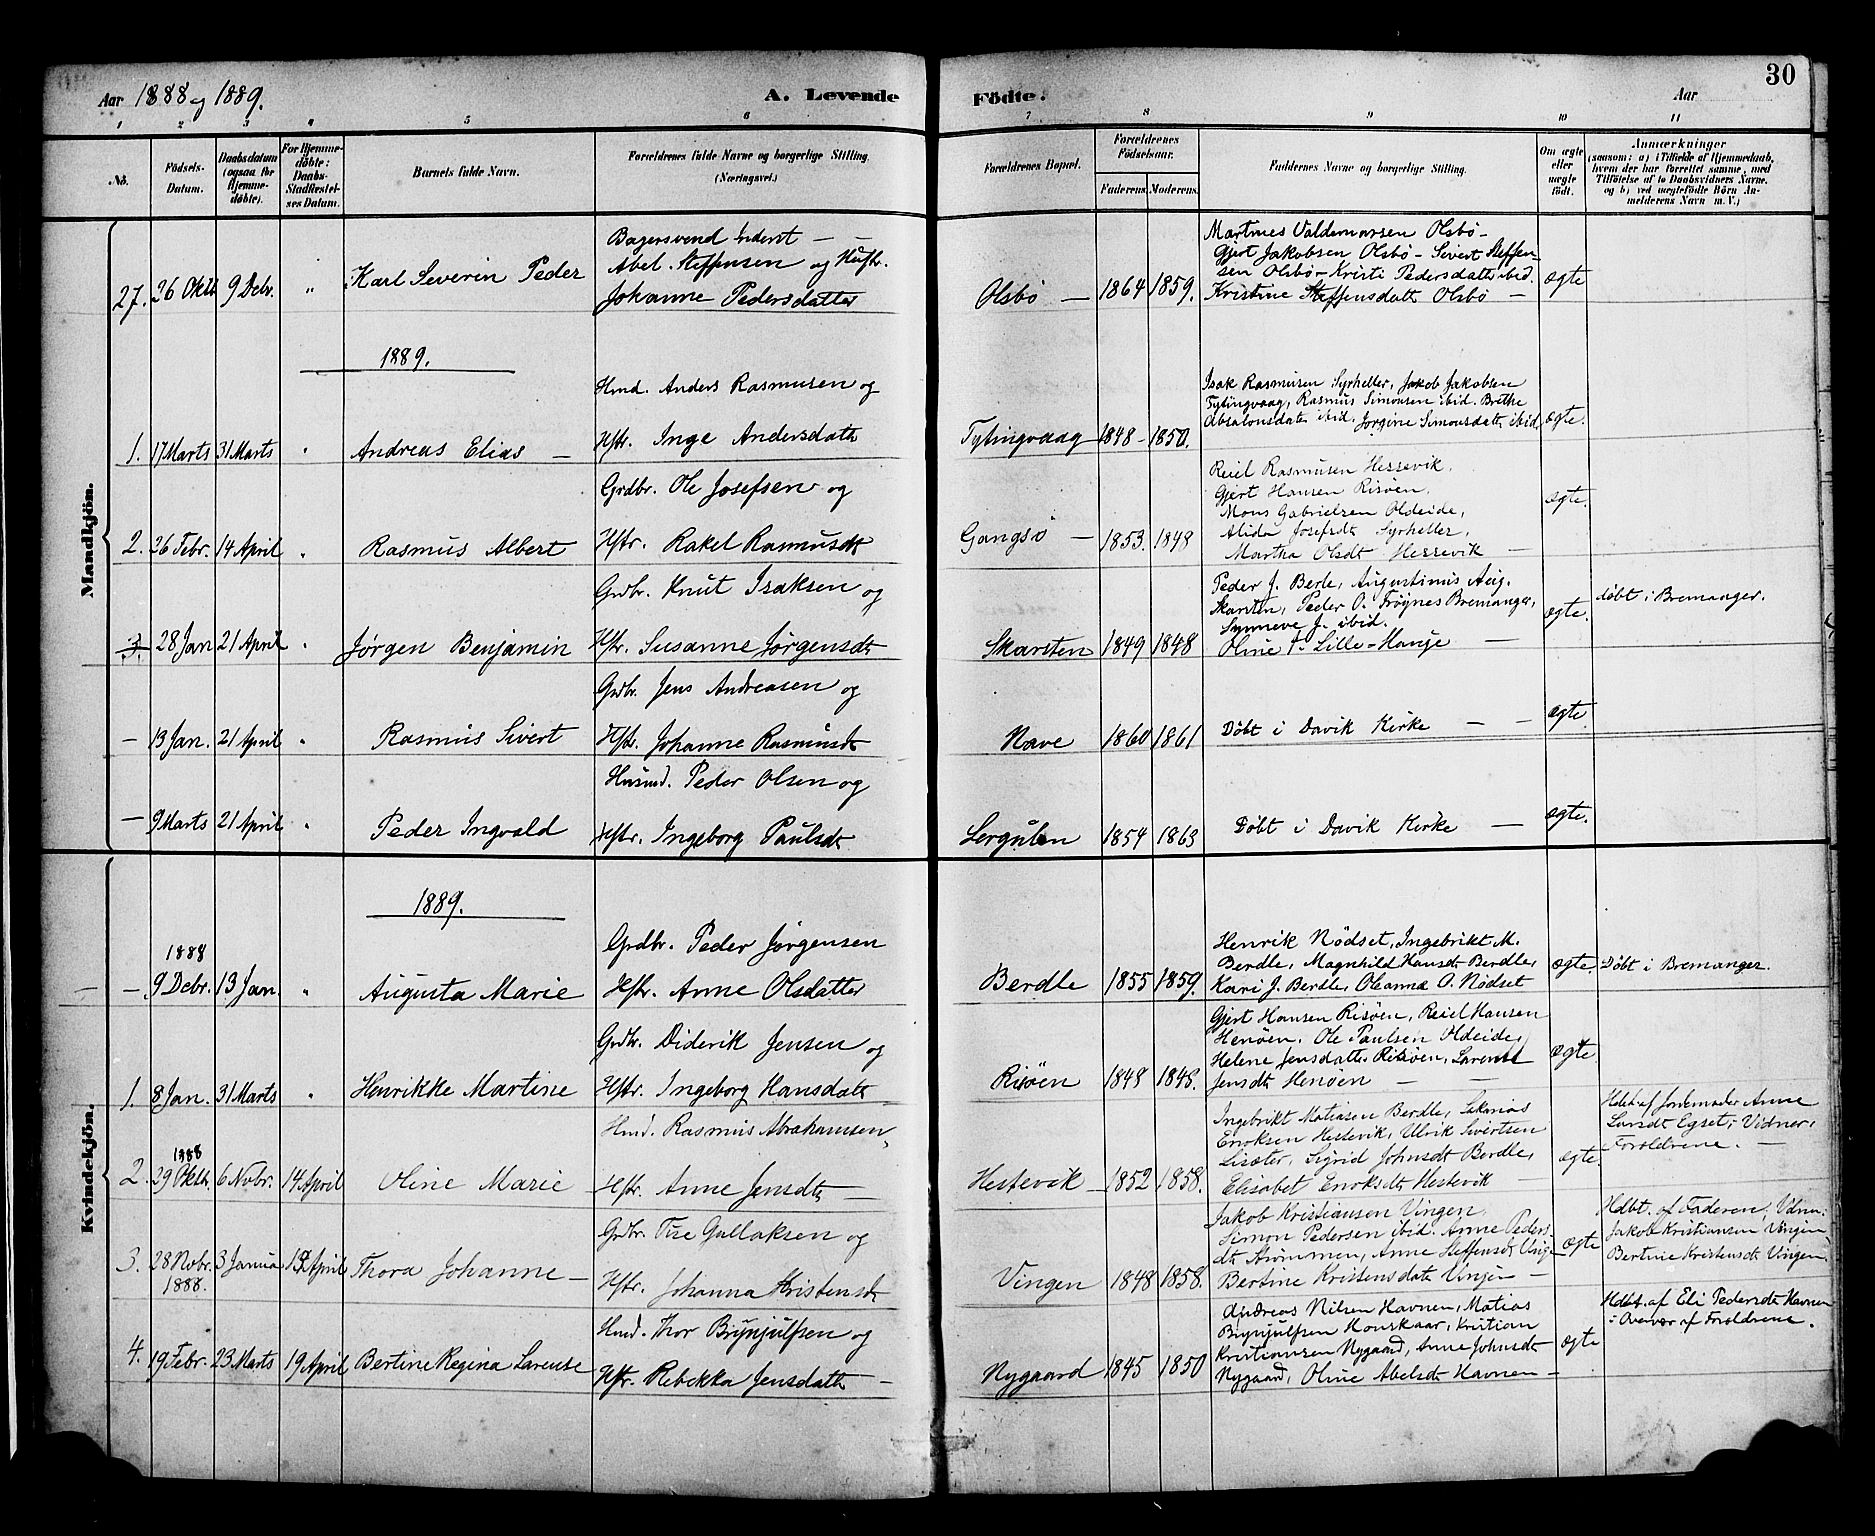 Aar 1888 og 1889.
A. Levende Födte.
Aar
30
1 2 3 4 5 6 7 8 9 10 11
No.
Födsels-Datum.
Daabsdatum (ogsaa for Hjemme-döbte).
For Hjemme-döbte: Daabs-Stadfæstel-ses Datum.
Barnets fulde Navn.
Forældrenes fulde Navne og borgerlige Stilling.
(Næringsvei.)
Forældrenes Bopæl.
Forældrenes Födselsaar.
Faderens. Moderens.
Faddernes Navne og borgerlige Stilling.
Om ægte eller uægte födt.
Anmærkninger
(saasom: a) i Tilfælde af Hjemmedaab,
hvem der har forrettet samme, med
Tilföielse af to Daabsvidners Navne,
og b) ved uægtefödte Börn An-
melderens Navn m. V.)
Mandkjön.
Bagersvend Inderst — —
Abel Steffensen og Hustr.
27. 26 Oktb 9 Debr. " Karl Severin Peder
Johanne Pedersdatter
Olsbö — 1864 1859.
Martines Valdemarsen Olsbö -
Gjert Jakobsen Olsbö - Sivert Steffen-
sen Olsbö - Kristi Pedersdatter ibid.
Kristine Steffensdatt. Olsbö —
ægte
1889.
Hmd. Anders Rasmusen og
1. 17 Marts 31 Marts " Andreas Elias —
Hstr. Inge Andersdatter
Tytingvaag 1848 - 1850.
Isak Rasmusen Syrhelter, Jakob Jakobsen
Tytingvaag, Rasmus Simonsen ibid. Brithe
Absalonsdatt. ibid. Jorgine Simonsdatt. ibid.
ægte.
Grdbr. Ole Josefsen og
2. 26 Febr. 14 April " Rasmus Albert
Hstr. Rakel Rasmusdt
Gangsö — 1853. 1848
Reiel Rasmusen Hessevik,
Gjert Hansen Risöen,
Mons Gabrielsen Oldeide,
Alida Josefsdt Syrhelter,
Martha Olsdt Hessevik —
ægte.
Grdbr. Knut Isaksen og
3. 28 Jan 21 April " Jørgen Benjamin
Hstr. Susanne Jørgensdt.
Skarsten 1849 1848
Peder J. Berle, Augustinus Aug.
Skarsten, Peder O. Frøynes Bremanger,
Synneve J. ibid.
Oline Lille-Hauge —
ægte.
døbt i Bremanger.
Grdbr. Jens Andreasen og
— 13 Jan. 21 April " Rasmus Sivert
Hstr. Johanne Rasmusdt.
Nave 1860 1861
Döbt i Davik Kirke — —
ægte.
Husmd. Peder Olsen og
— 9 Marts 21 April " Peder Ingvald
Hstr. Ingeborg Paulsdt
Lergulen 1854 1863
Döbt i Davik Kirke —
ægte.
Kvindekjön.
1889.
1888
Grdbr. Peder Jørgensen
— 9 Debr. 13 Jan. " Augusta Marie
Hstr. Anne Olsdatter
Berdle 1855 1859.
Henrik Nödset, Ingebrikt M.
Berdle, Magnhild Hansdt. Berdle,
Kari J. Berdle, Oleanna O. Nödset
ægte.
Döbt i Bremanger.
Grdbr. Diderik Jensen og
1. 8 Jan. 31 Marts " Henrikke Martine
Hstr. Ingeborg Hansdatt.
Risöen 1848 1848.
Gjert Hansen Risöen, Reiel Hansen
Henöen, Ole Paulsen Oldeide,
Helene Jensdatt. Risöen, Larense
Jensdt Henöen — —
ægte.
Hmd. Rasmus Abrahamsen
1888
2. 29 Oktb. 6 Novbr. 14 April Oline Marie
Hstr. Anne Jensdt. —
Hestevik 1852 1858.
Ingebrikt Matiasen Berdle, Sakarias
Enoksen Hestevik, Ulrik Sivertsen
Lisæter, Sigrid Johnsdt Berdle,
Elisabet Enoksdt Hestevik —
ægte.
Hdbt. af Jordemoder Anne
Larsdt Egset, Vidner,
Foreldrene. —
Grdbr. Gullaksen og
3. 28 Novbr. 1888. 3 Janua 19 April Thora Johanne —
Hstr. Johanna Kristensdt.
Vingen 1848 1858.
Jakob Kristiansen Vingen,
Simon Pedersen ibid. Anne Peders-
dt. Strømmen, Anne Steffensdt. Ving-
Bertine Kristensdatt. Vingen —
ægte
Hdbt. af Faderen, Vdner
Jakob Kristiansen Vingen
Bertine Kristensdt Vingen
Hmd. Thor Brynjulfsen og
4. 19 Febr. 23 Marts 19 April Bertine Regina Larense
Hstr. Rebekka Jensdatt. —
Nygaard 1845 1850
Andreas Nilsen Havnen, Matias
Brynjulfsen Honskaar, Kristian
Kristiansen Nygaard, Anne Johnsdt
Nygaard, Oline Abelsdt Havnen —
ægte
Hdbt. af Eli Pedersdt Havnen
i Overvær af Foreldrene.